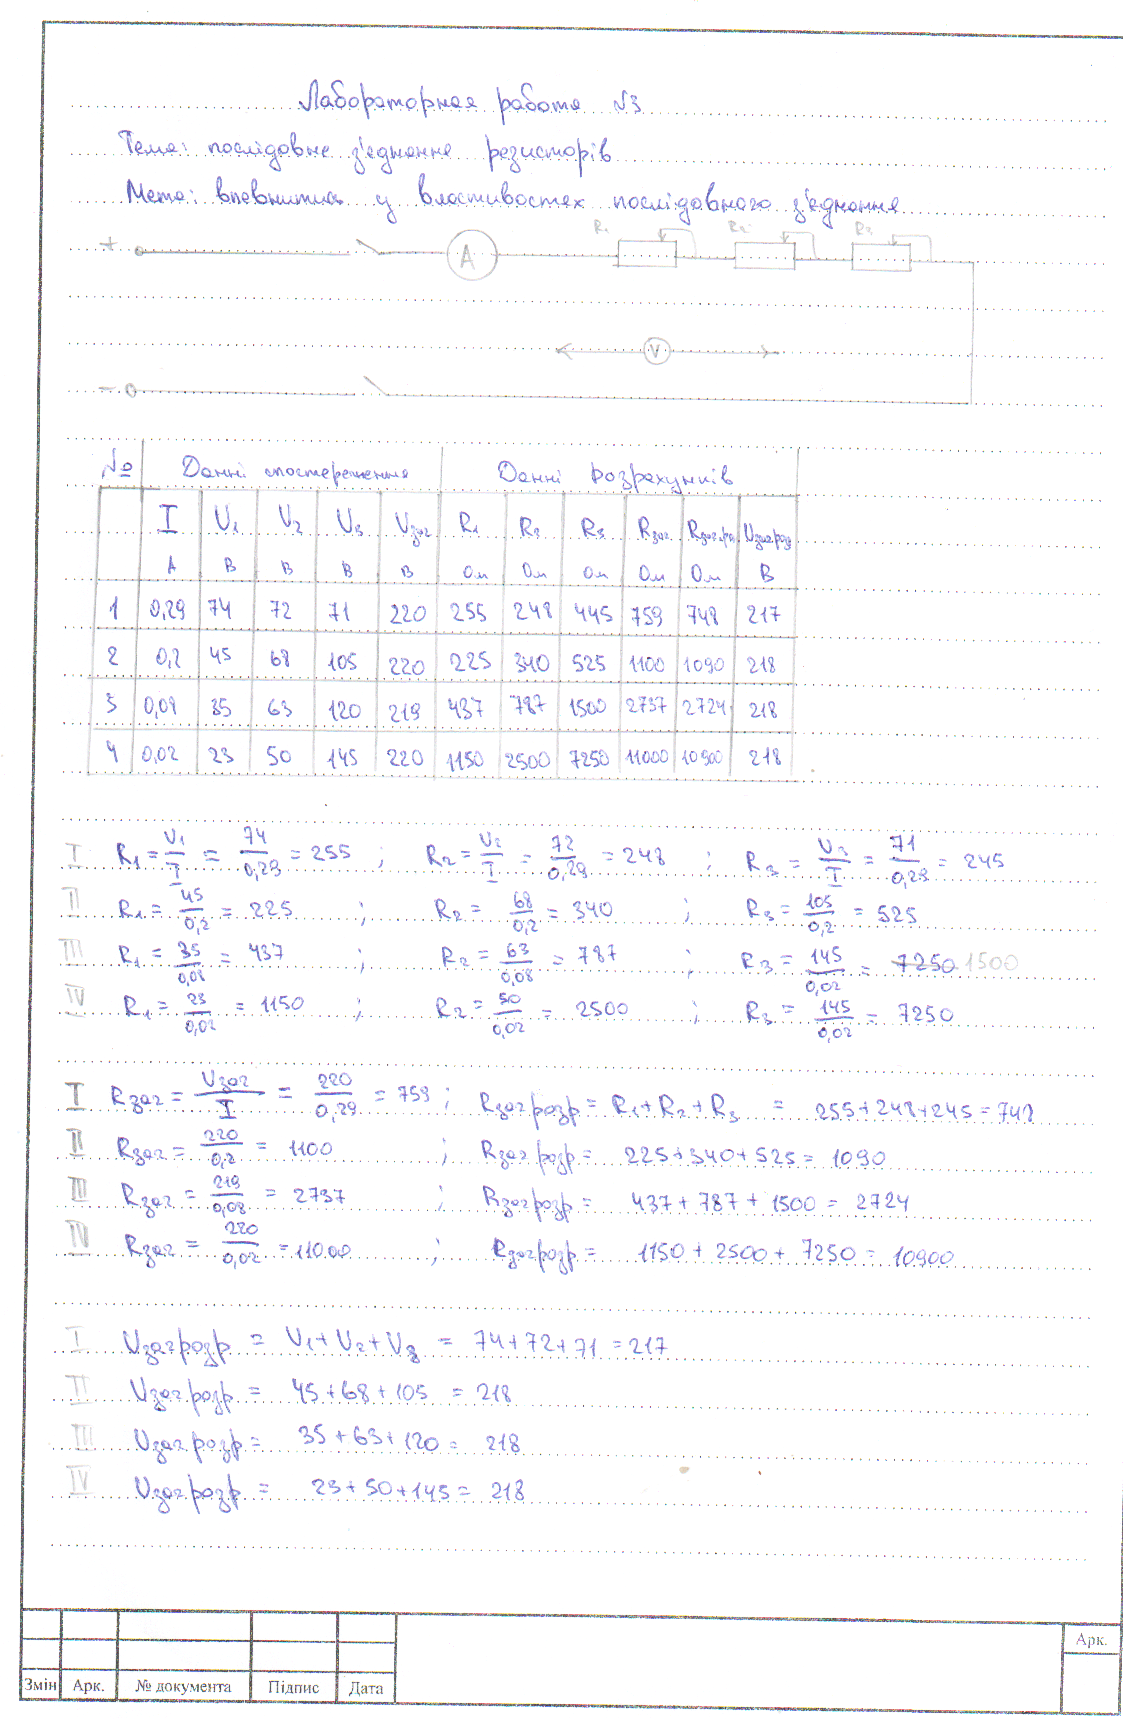 Лабораторная работа №3
Тема: послідовне з'єднання резисторів
Мета: впевнитись у властивостях послідовного з'єднання
+ A R₁ R₂ R₃
V
−
№ Данні спостереження Данні розрахунків
I U₁ U₂ U₃ Uзаг R₁ R₂ R₃ Rзаг Rзаг.роз Uзагроз
А В В В В Ом Ом Ом Ом Ом В
1 0,29 74 72 71 220 255 248 445 759 748 217
2 0,2 45 68 105 220 225 340 525 1100 1090 218
3 0,08 35 63 120 219 437 787 1500 2737 2724 218
4 0,02 23 50 145 220 1150 2500 7250 11000 10900 218
I R₁ = U₁/I = 74/0,29 = 255 ; R₂ = U₂/I = 72/0,29 = 248 ; R₃ = U₃/I = 71/0,29 = 245
II R₁ = 45/0,2 = 225 ; R₂ = 68/0,2 = 340 ; R₃ = 105/0,2 = 525
III R₁ = 35/0,08 = 437 ; R₂ = 63/0,08 = 787 ; R₃ = 145/0,02 = 7250 1500
IV R₁ = 23/0,02 = 1150 ; R₂ = 50/0,02 = 2500 ; R₃ = 145/0,02 = 7250
I Rзаг = Uзаг/I = 220/0,29 = 759 ; Rзаг розр = R₁+R₂+R₃ = 255+248+245=748
II Rзаг = 220/0,2 = 1100 ; Rзаг розр = 225+340+525 = 1090
III Rзаг = 219/0,08 = 2737 ; Rзаг розр = 437+787+1500 = 2724
IV Rзаг = 220/0,02 = 11000 ; Rзаг розр = 1150+2500+7250 = 10900
I Uзаг розр = U₁+U₂+U₃ = 74+72+71 = 217
II Uзаг розр = 45+68+105 = 218
III Uзаг розр = 35+63+120 = 218
IV Uзаг розр = 23+50+145 = 218
Арк.
Змін Арк. № документа Підпис Дата